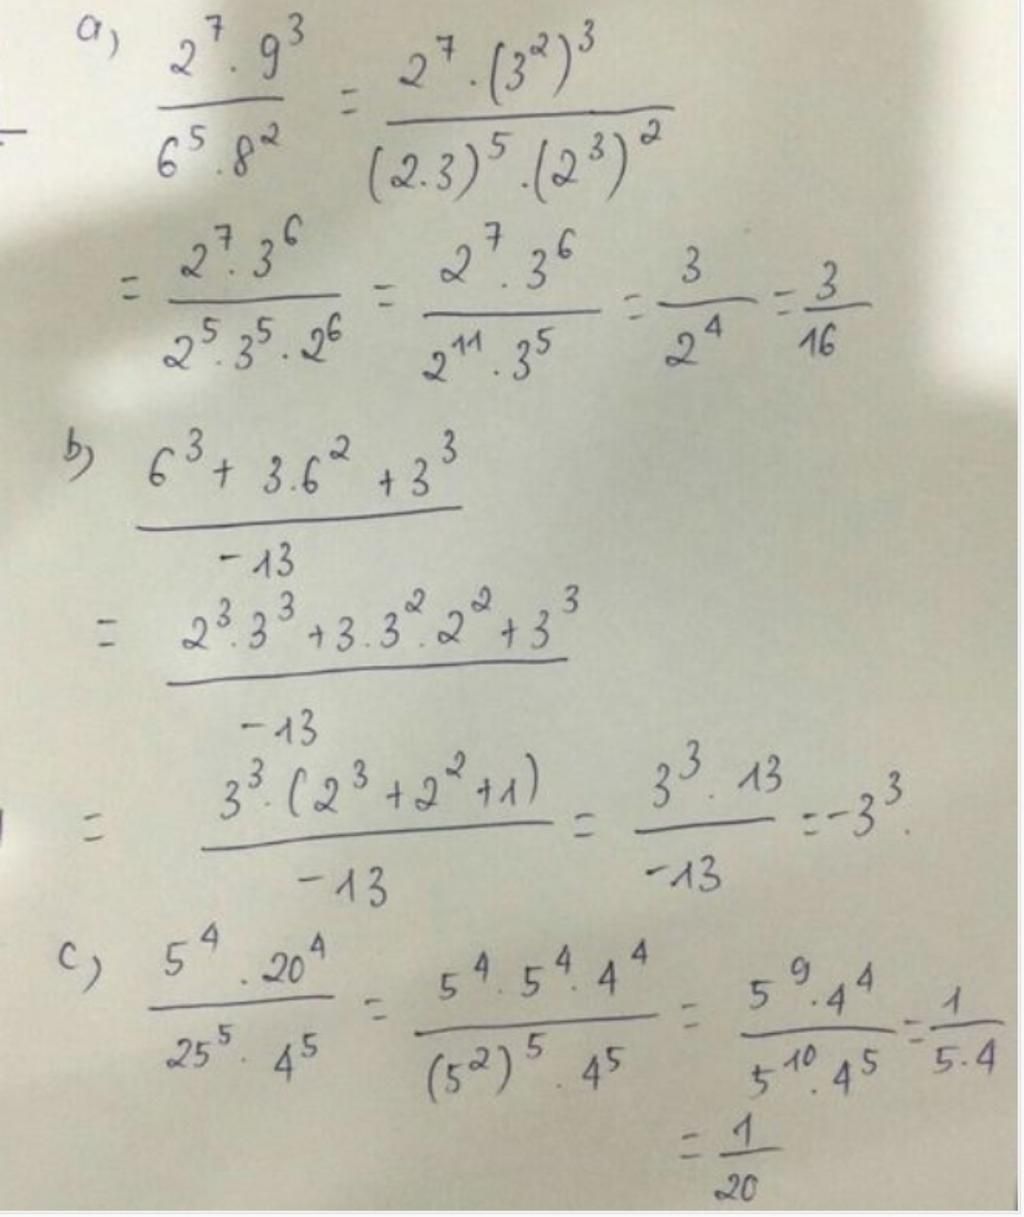 a) \frac{2^7 . 9^3}{6^5 . 8^2} = \frac{2^7 . (3^2)^3}{(2.3)^5 . (2^3)^2}
= \frac{2^7 . 3^6}{2^5 . 3^5 . 2^6} = \frac{2^7 . 3^6}{2^{11} . 3^5} = \frac{3}{2^4} = \frac{3}{16}
b) \frac{6^3 + 3.6^2 + 3^3}{-13}
= \frac{2^3 . 3^3 + 3 . 3^2 . 2^2 + 3^3}{-13}
= \frac{3^3 . (2^3 + 2^2 + 1)}{-13} = \frac{3^3 . 13}{-13} = -3^3 .
c) \frac{5^4 . 20^4}{25^5 . 4^5} = \frac{5^4 . 5^4 . 4^4}{(5^2)^5 . 4^5} = \frac{5^9 . 4^4}{5^{10} . 4^5} = \frac{1}{5.4}
= \frac{1}{20}